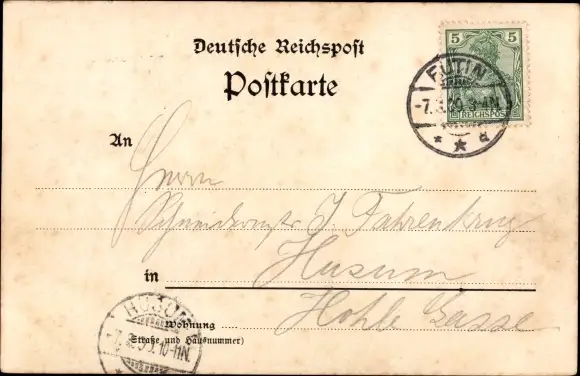 5 5
REICHSPOST
EUTIN
-7.3.00 3-4N.
* * d
Deutsche Reichspost
Postkarte
An
Herrn
Schneidermstr J. Fahrenkrug
in Husum
Hohle Gasse
Wohnung
(Straße und Hausnummer)
HUSUM
10-11N.